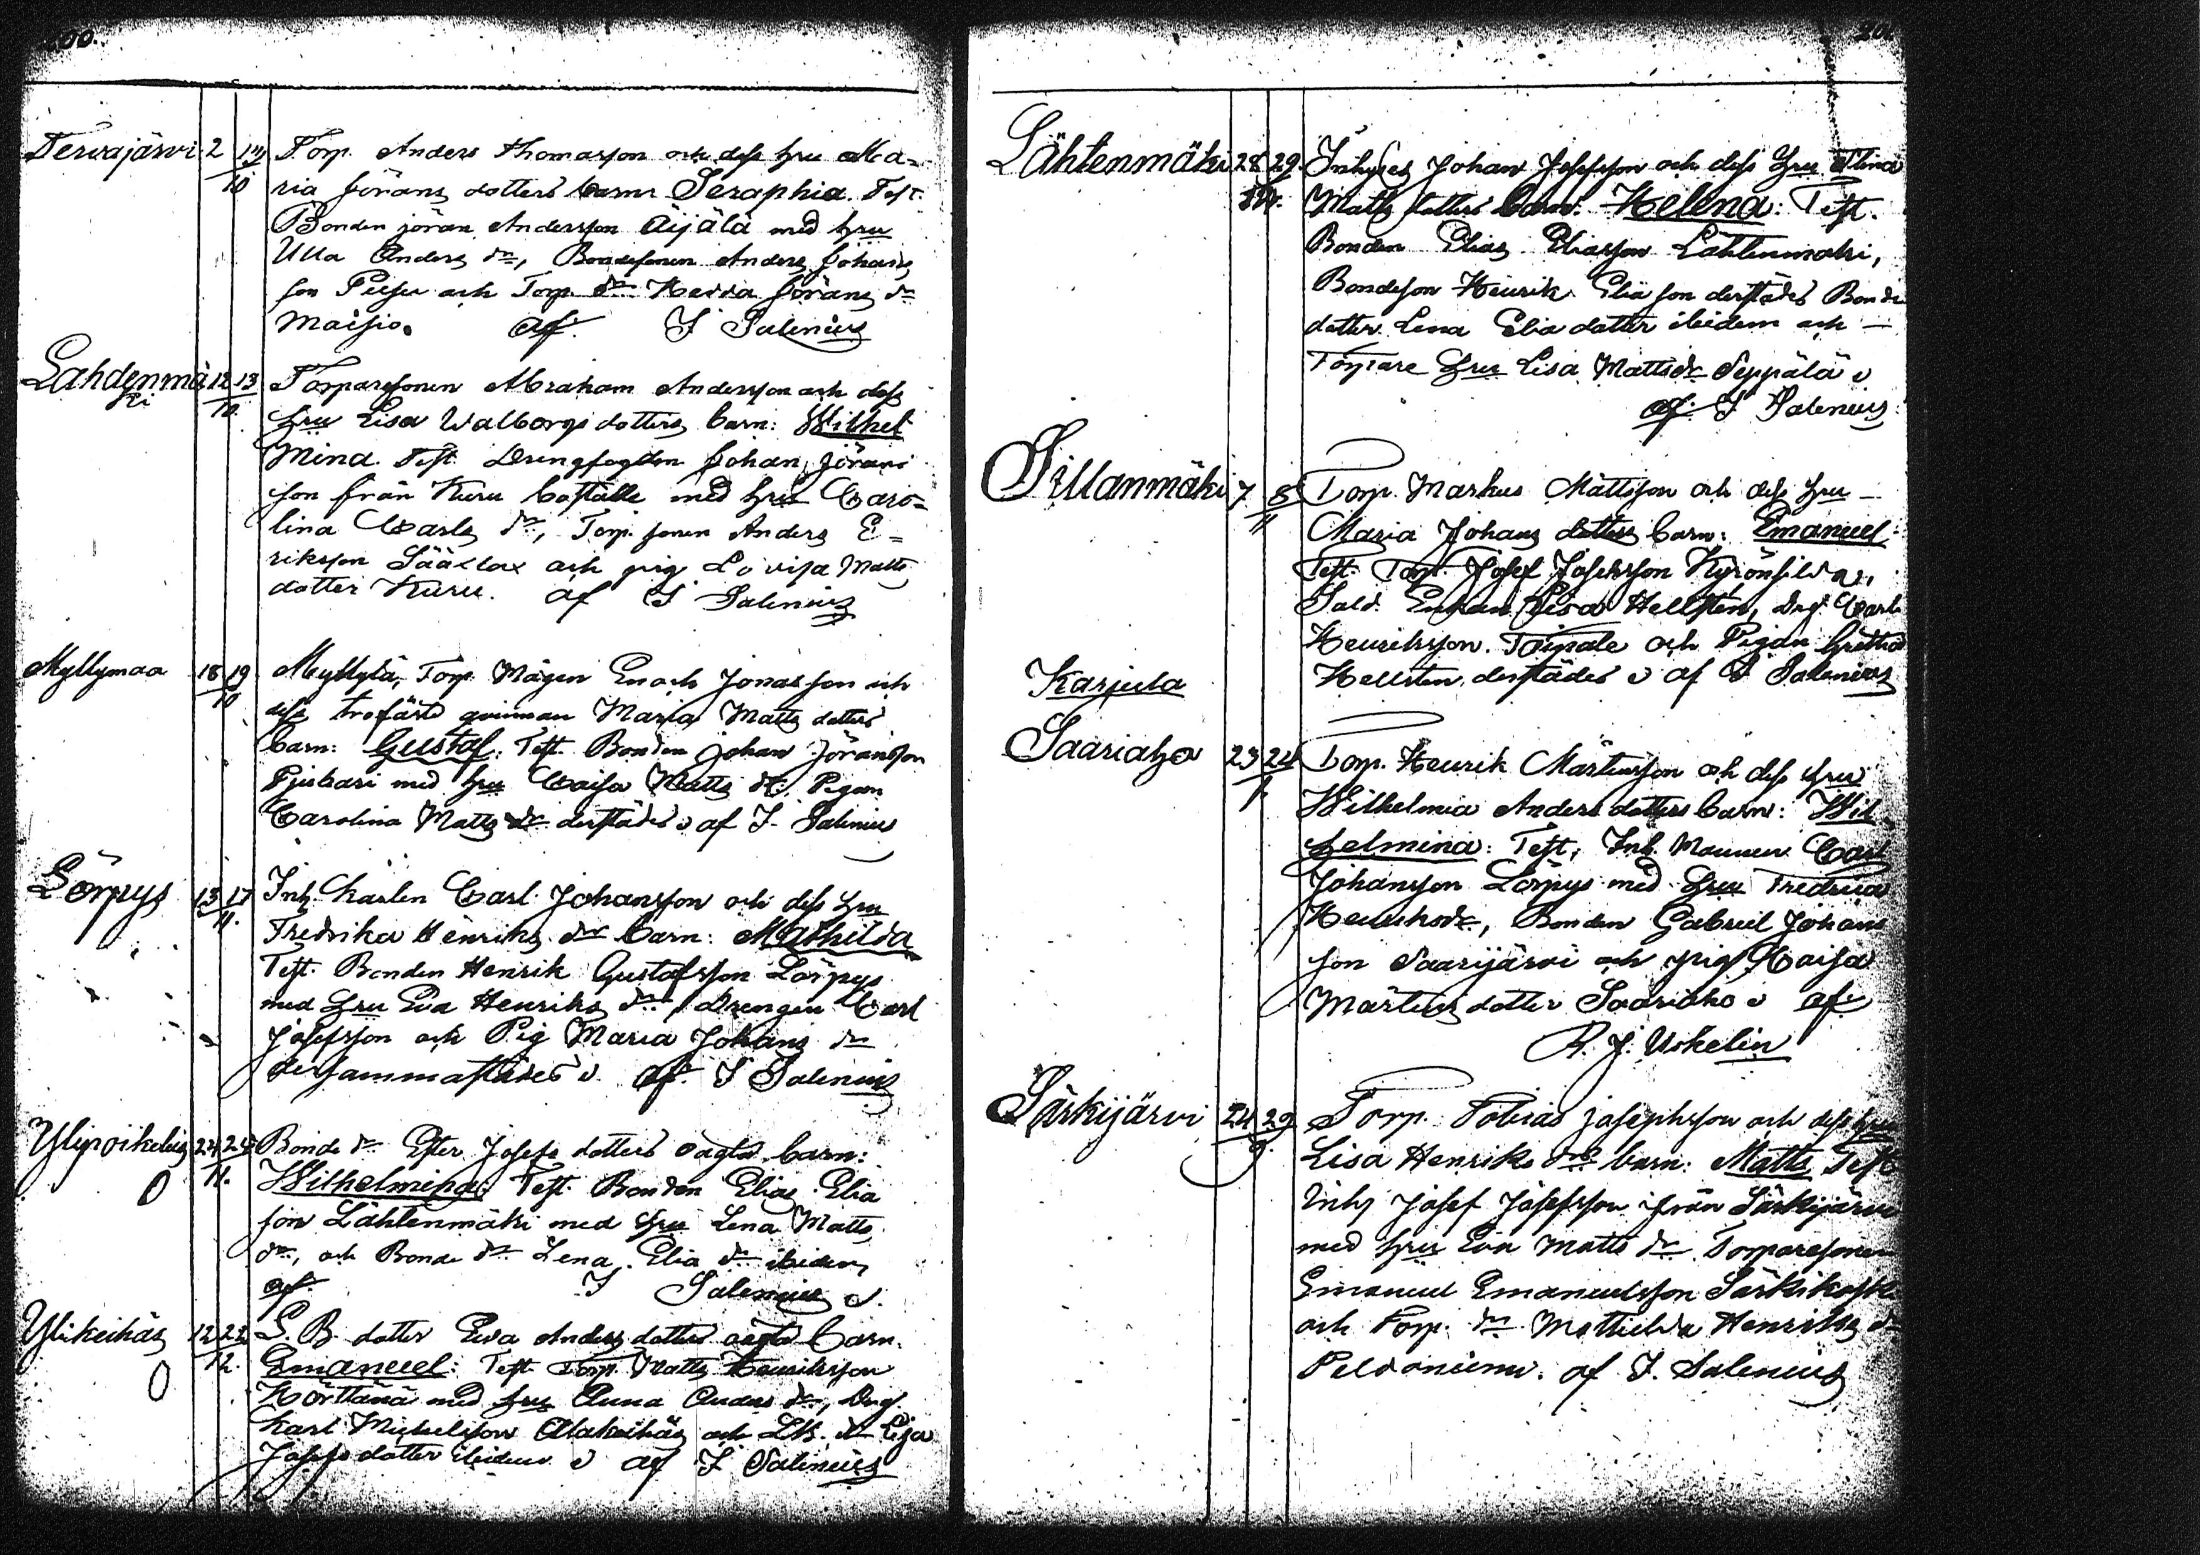 200.
Tervajärvi 2 14/10 Torp. Anders Thomasson och dess hru Ma=
ria Jörans dotters barn Seraphia. Test.
Bonden Jöran Andersson Äijälä med hru
Ulla Anders dr, Bondesonen Anders Johans
son och Torp. dr Hedda Jörans dr
Maisio. af. I Salenius
Lahdenmä
ki 12 13/10 Torparesonen Abraham Andersson och dess
hru Lisa Walborgs dotters barn: Wilhel
mina. Test. Drengfogden Johan Jörans
son från Kuru boställe med hru Caro=
lina Carls dr, Torp. sonen Anders E=
riksson Sääxlax och pig Lovisa Matts
dotter Kuru. af I Salenius
Myllymaa 18 19/10 Myllylä, Torp. Mågen Enoch Jonasson och
dess trofäste qvinnan Maria Matts dotters
barn: Gustaf: Test. Bonden Johan Jöransson
med hru Caisa Matts dr. Pigan
Carolina Matts dr derstädes af I. Salenius
Lörpys 13 17/11. Inh. Karlen Carl Johansson och dess hru
Fredrika Henriks dr barn: Mathilda
Test. Bonden Henrik Gustafsson Lörpys
med hru Eva Henriks dr. Drengen Carl
Josefsson och Pig Maria Johans dr
dersammastädes af. I Salenius
24 25/11. Bonde dr Ester Josefs dotters oägta barn:
0 Wilhelmina. Test. Bonden Elias Elia
son Lähtenmäki med hru Lena Matts
dr, och Bonde dr Lena Elia dr ibidem
af. I Salenius
Ylikeihäs 12 22/12. S. B. dotter Eva Anders dotters oägta barn.
0 Emanuel: Test Torp. Matts Henriksson
Körttänä med hru Anna Anders dr, Drg.
Karl Michelsson Alakeihäs och dr Lisa
Josefs dotter ibidem af I Salenius
201
Lähtenmäki 28 29 Inhyses Johan Josefsson och dess hru Stina
Matts dotters barn: Helena: Test.
Bonden Elias Eliasson Lähtenmäki,
Bondeson Henrik Elia son derstädes Bonde
dotter Lena Elia dotter ibidem och —
Torpare hru Lisa Matts dr Seppälä
af. I Salenius
Sillanmäki 7 8/11 Torp. Markus Mattsson och dess hru —
Maria Johans dotters barn: Emanuel:
Test. Torp. Josef Josefsson
Sold. Enkan Lisa Hellsten, Drg. Carl
Henriksson. Taipale och Pigan Gretha
Hellsten, derstädes af I Salenius
Karjula
Saariaho 23 24 Torp. Henrik Mårtensson och dess hru
Wilhelmia Anders dotters barn: Wil
helmina: Test. Inh. Mannen Carl
Johansson Lörpys med hru Fredrica
Henriks dr, Bonden Gabriel Johans
son Saarijärvi och pig Caisa
Mårtens dotter Saariaho af
A. J. Uskelin
Särkijärvi 24 29/9. Torp. Tobias Josephsson och dess hru
Lisa Henriks drs barn: Matts Test
Inhs Josef Josefsson från Särkijärvi
med hru Eva Matts dr Torparesonen
Emanuel Emanuelsson Särkikoski
och Torp. dr Mathilda Henriks dr
Peldoniemi. af I. Salenius